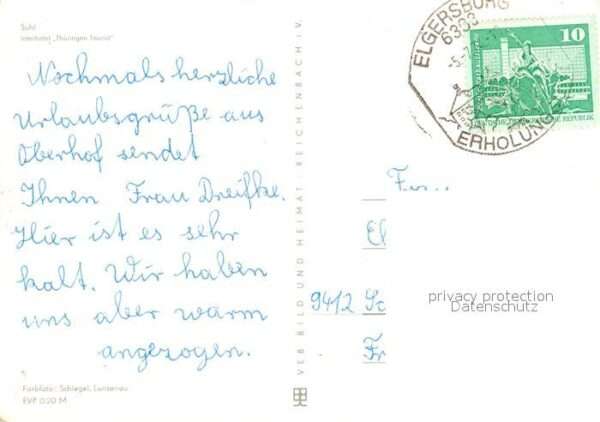 Suhl
Interhotel „Thüringen Tourist"
Nochmals herzliche
Urlaubsgrüße aus
Oberhof sendet
Ihnen Frau Dreifke.
Hier ist es sehr
kalt. Wir haben
uns aber warm
angezogen.
Farbfoto: Schlegel, Lunzenau
EVP 0,20 M
VEB BILD UND HEIMAT REICHENBACH i. V.
ELGERSBURG
6303
ERHOLUNG
10
REPUBLIK
9412
privacy protection
Datenschutz